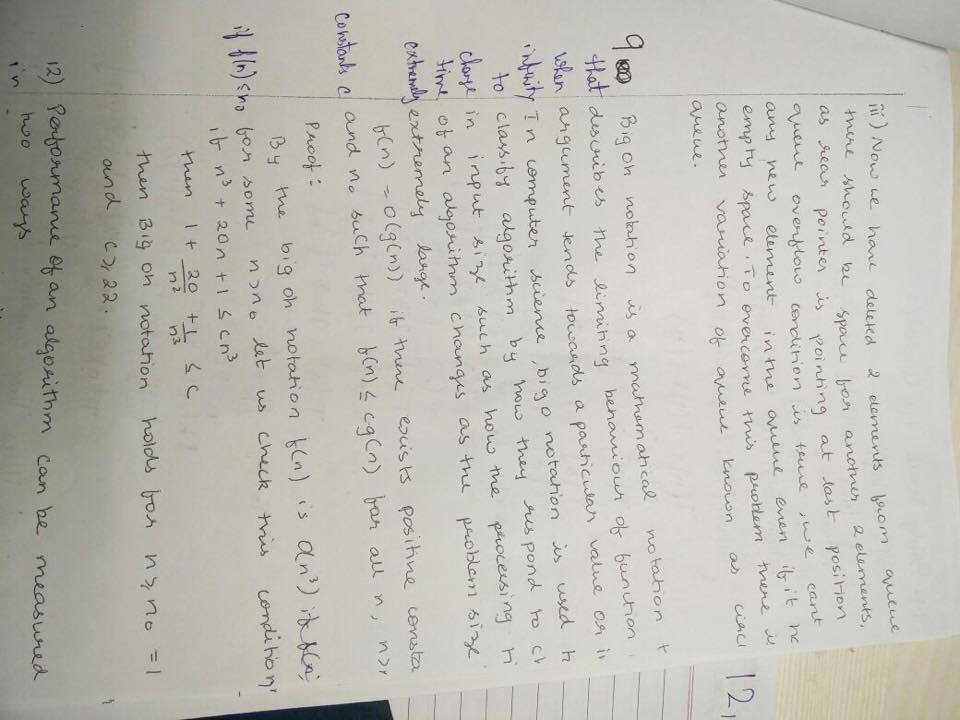 iii) Now we have deleted 2 elements from queue
there should be space for another 2 elements,
as rear pointer is pointing at last position
queue overflow condition is true, we cant
any new element in the queue even if it ha
empty space. To overcome this problem there is
another variation of queue known as circl
queue.
12,
9 Big oh notation is a mathematical notation t
that describes the limiting behaviour of function
when argument tends towards a particular value or in
infinity In computer science, big o notation is used t
to classify algorithm by how they respond to ch
change in input size such as how the processing ti
time of an algorithm changes as the problem size
extremely extremely large.
f(n) = O(g(n)) if there exists positive consta
constants c and n₀ such that f(n) ≤ cg(n) for all n, n≥
Proof:
By the big oh notation f(n) is O(n³) if f(n)
if f(n) ≤ n₀ for some n>n₀ let us check this condition
if n³ + 20n + 1 ≤ cn³
then 1 + 20/n² + 1/n³ ≤ c
then Big oh notation holds for n ≥ n₀ = 1
and c ≥ 22.
12) Performance of an algorithm can be measured
in two ways